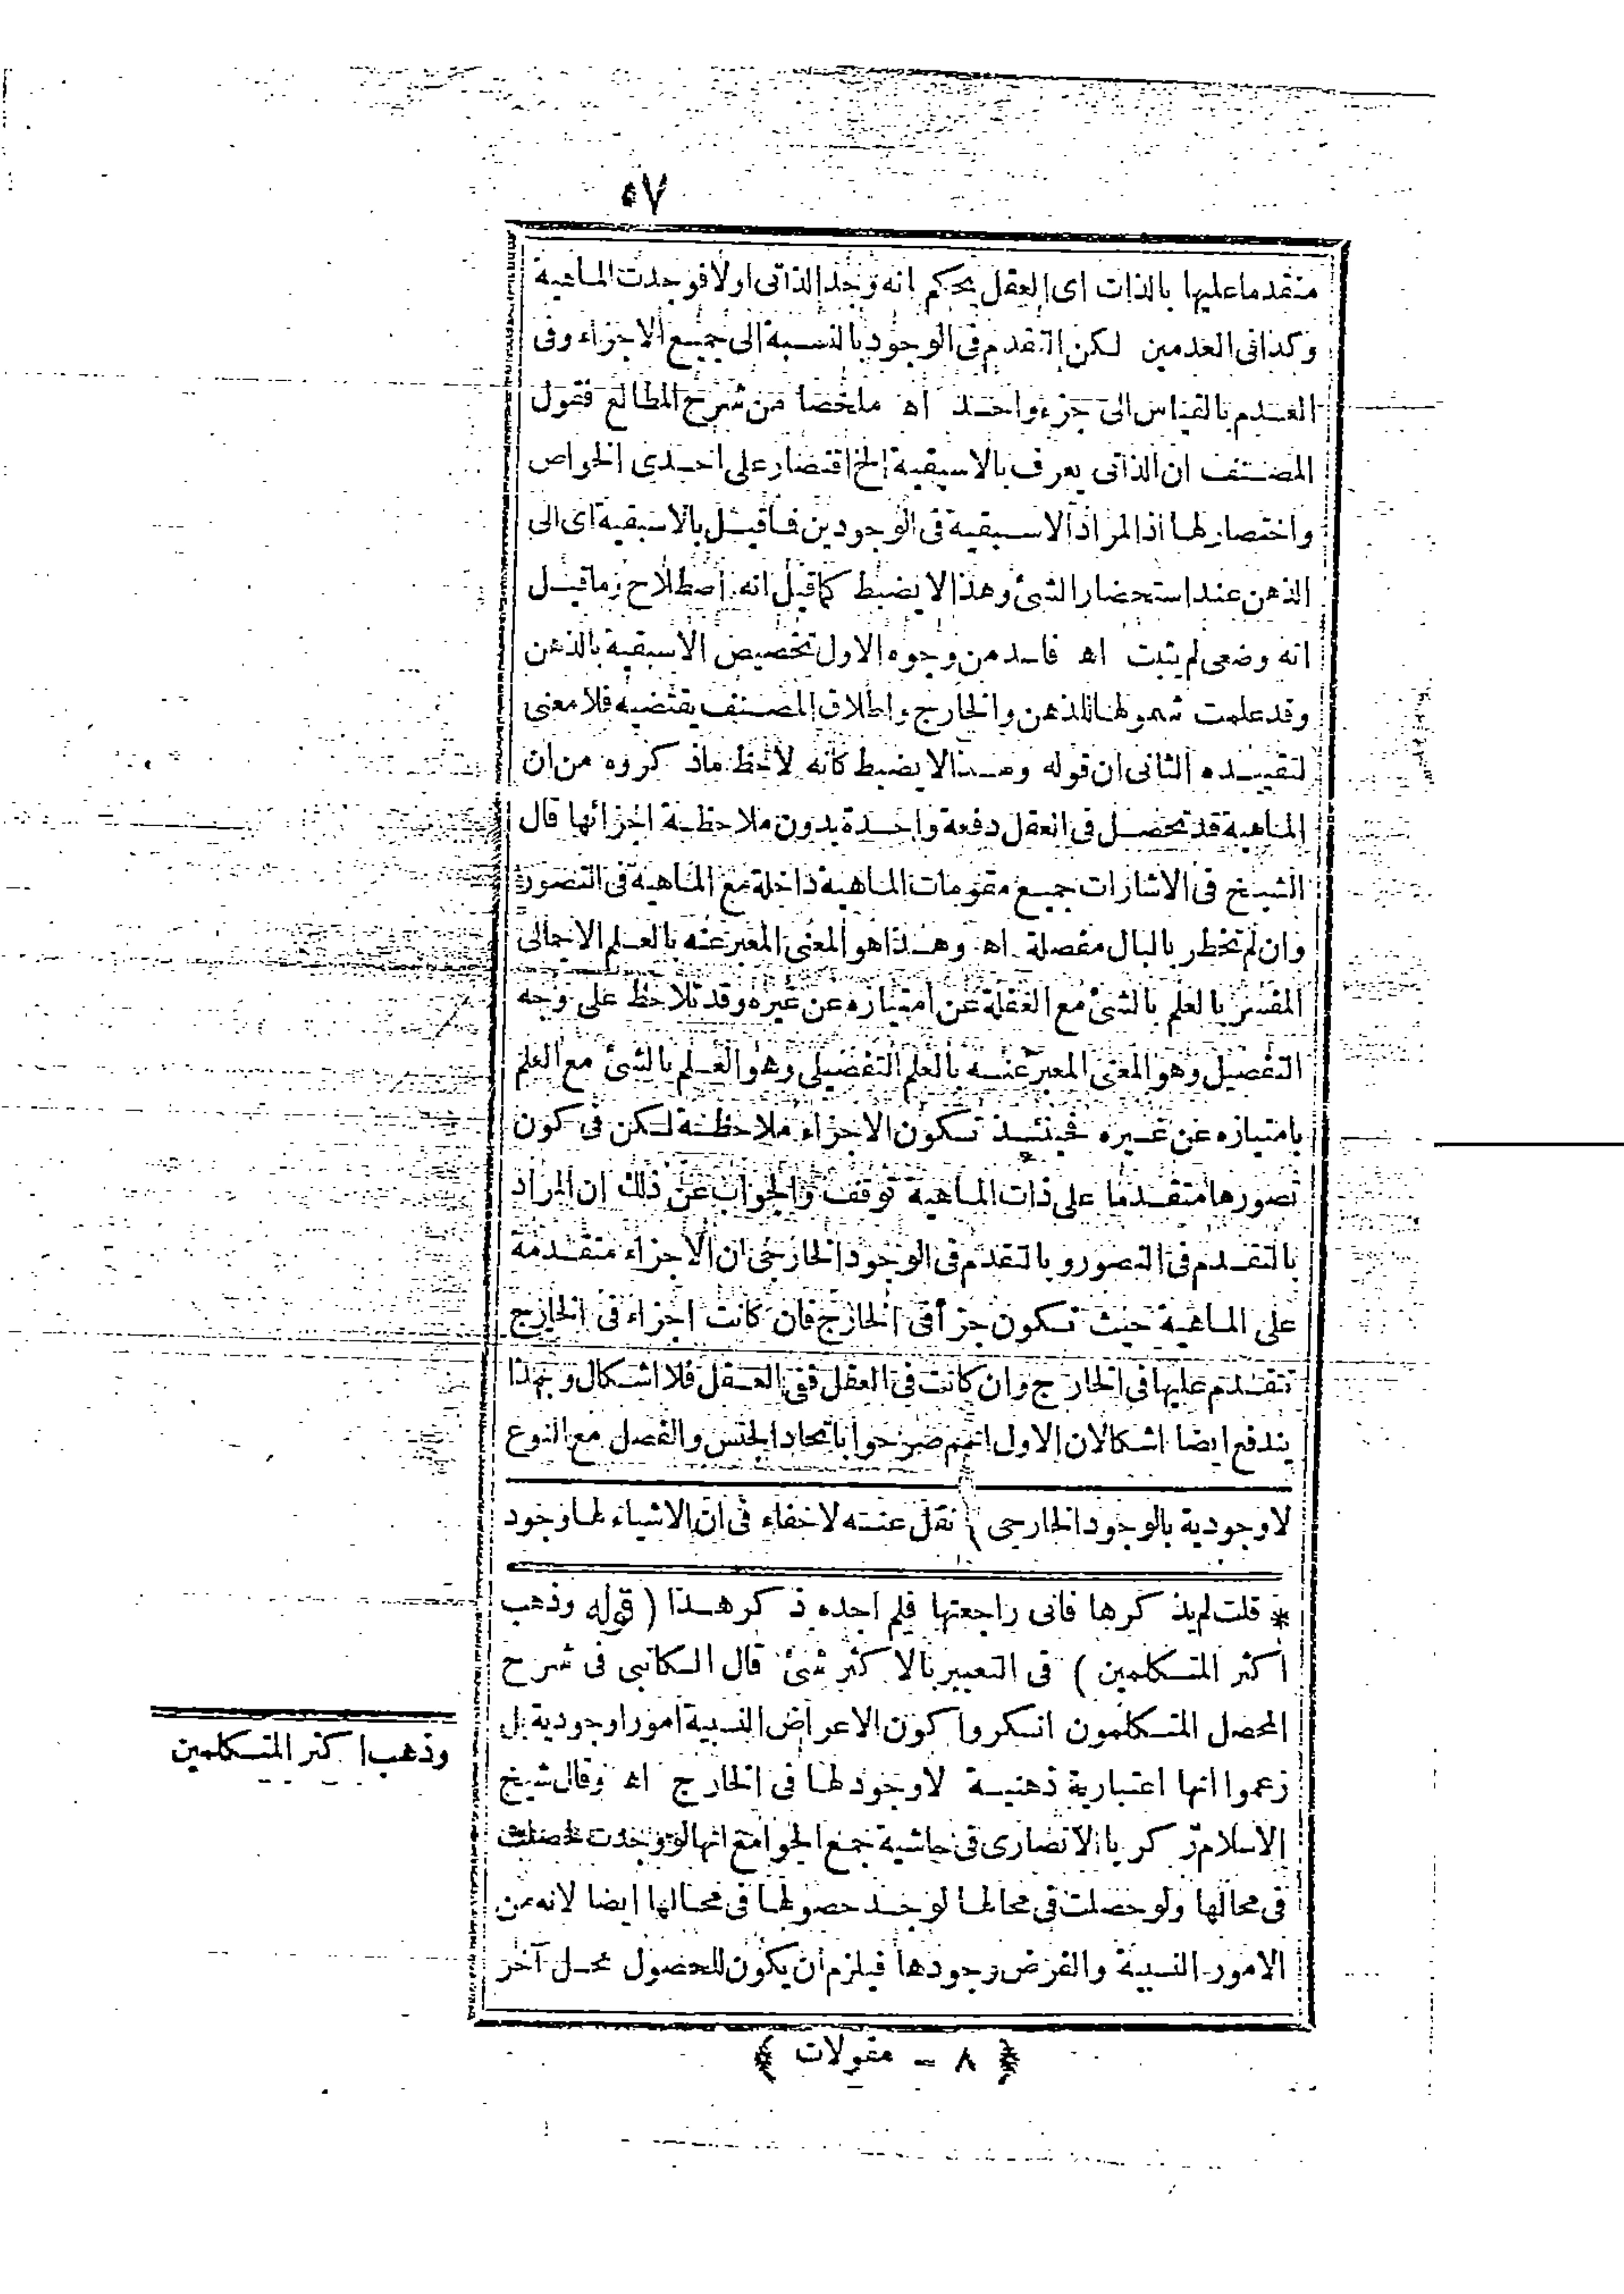 ٥٧
متقدما عليها بالذات اى العقل يحكم انه وجد الذاتى اولا فوجدت الماهية
وكذا فى العدمين لكن التقدم فى الوجود بالنسبة الى جميع الاجزاء وفى
العدم بالقياس الى جزء واحد اه ملخصا من شرح المطالع فقول
المصنف ان الذاتى يعرف بالاسبقية الخ اقتصار على احدى الخواص
واختصار لها اذ المراد الاسبقية فى الوجودين فما قيل بالاسبقية اى الى
الذهن عند استحضار الشئ وهذا لا يضبط كما قيل انه اصطلاح وما قيل
انه وضعى لم يثبت اه فاسد من وجوه الاول تخصيص الاسبقية بالذهن
وقد علمت شمولها للذهن والخارج واطلاق المصنف يقتضيه فلا معنى
لتقييده الثانى ان قوله وهذا لا يضبط كانه لاحظ ماذكروه من ان
الماهية قد تحصل فى العقل دفعة واحدة بدون ملاحظة اجزائها قال
الشيخ فى الاشارات جميع مقومات الماهية داخلة مع الماهية فى التصور
وان لم تخطر بالبال مفصلة اه وهذا هو المعنى المعبر عنه بالعلم الاجمالى
المفسر بالعلم بالشئ مع الغفلة عن امتيازه عن غيره وقد تلاحظ على وجه
التفصيل وهو المعنى المعبر عنه بالعلم التفصيلى وهو العلم بالشئ مع العلم
بامتيازه عن غيره فحينئذ تكون الاجزاء ملاحظة لكن فى كون
تصورها متقدما على ذات الماهية توقف والجواب عن ذلك ان المراد
بالتقدم فى التصور وبالتقدم فى الوجود الخارجى ان الاجزاء متقدمة
على الماهية حيث تكون جزأ فى الخارج فان كانت اجزاء فى الخارج
تتقدم عليها فى الخارج وان كانت فى العقل ففى العقل فلا اشكال وبهذا
يندفع ايضا اشكالان الاول انهم صرحوا باتحاد الجنس والفصل مع النوع
لا وجودية بالوجود الخارجى ) نقل عنه لا خفاء فى ان الاشياء لها وجود
* قلت لم يذكرها فانى راجعتها فلم اجده ذكر هذا ( قوله وذهب
اكثر المتكلمين ) فى التعبير بالاكثر شئ قال الكاتبى فى شرح
المحصل المتكلمون انكروا كون الاعراض النسبية امورا وجودية بل
زعموا انها اعتبارية ذهنية لا وجود لها فى الخارج اه وقال شيخ
الاسلام زكريا الانصارى فى حاشية جمع الجوامع انها لو وجدت لحصلت
فى محالها ولو حصلت فى محالها لوجد حصولها فى محالها ايضا لانه من
الامور النسبية والفرض وجودها فيلزم ان يكون للحصول محل آخر
وذهب اكثر المتكلمين
﴿ ٨ – مقولات ﴾